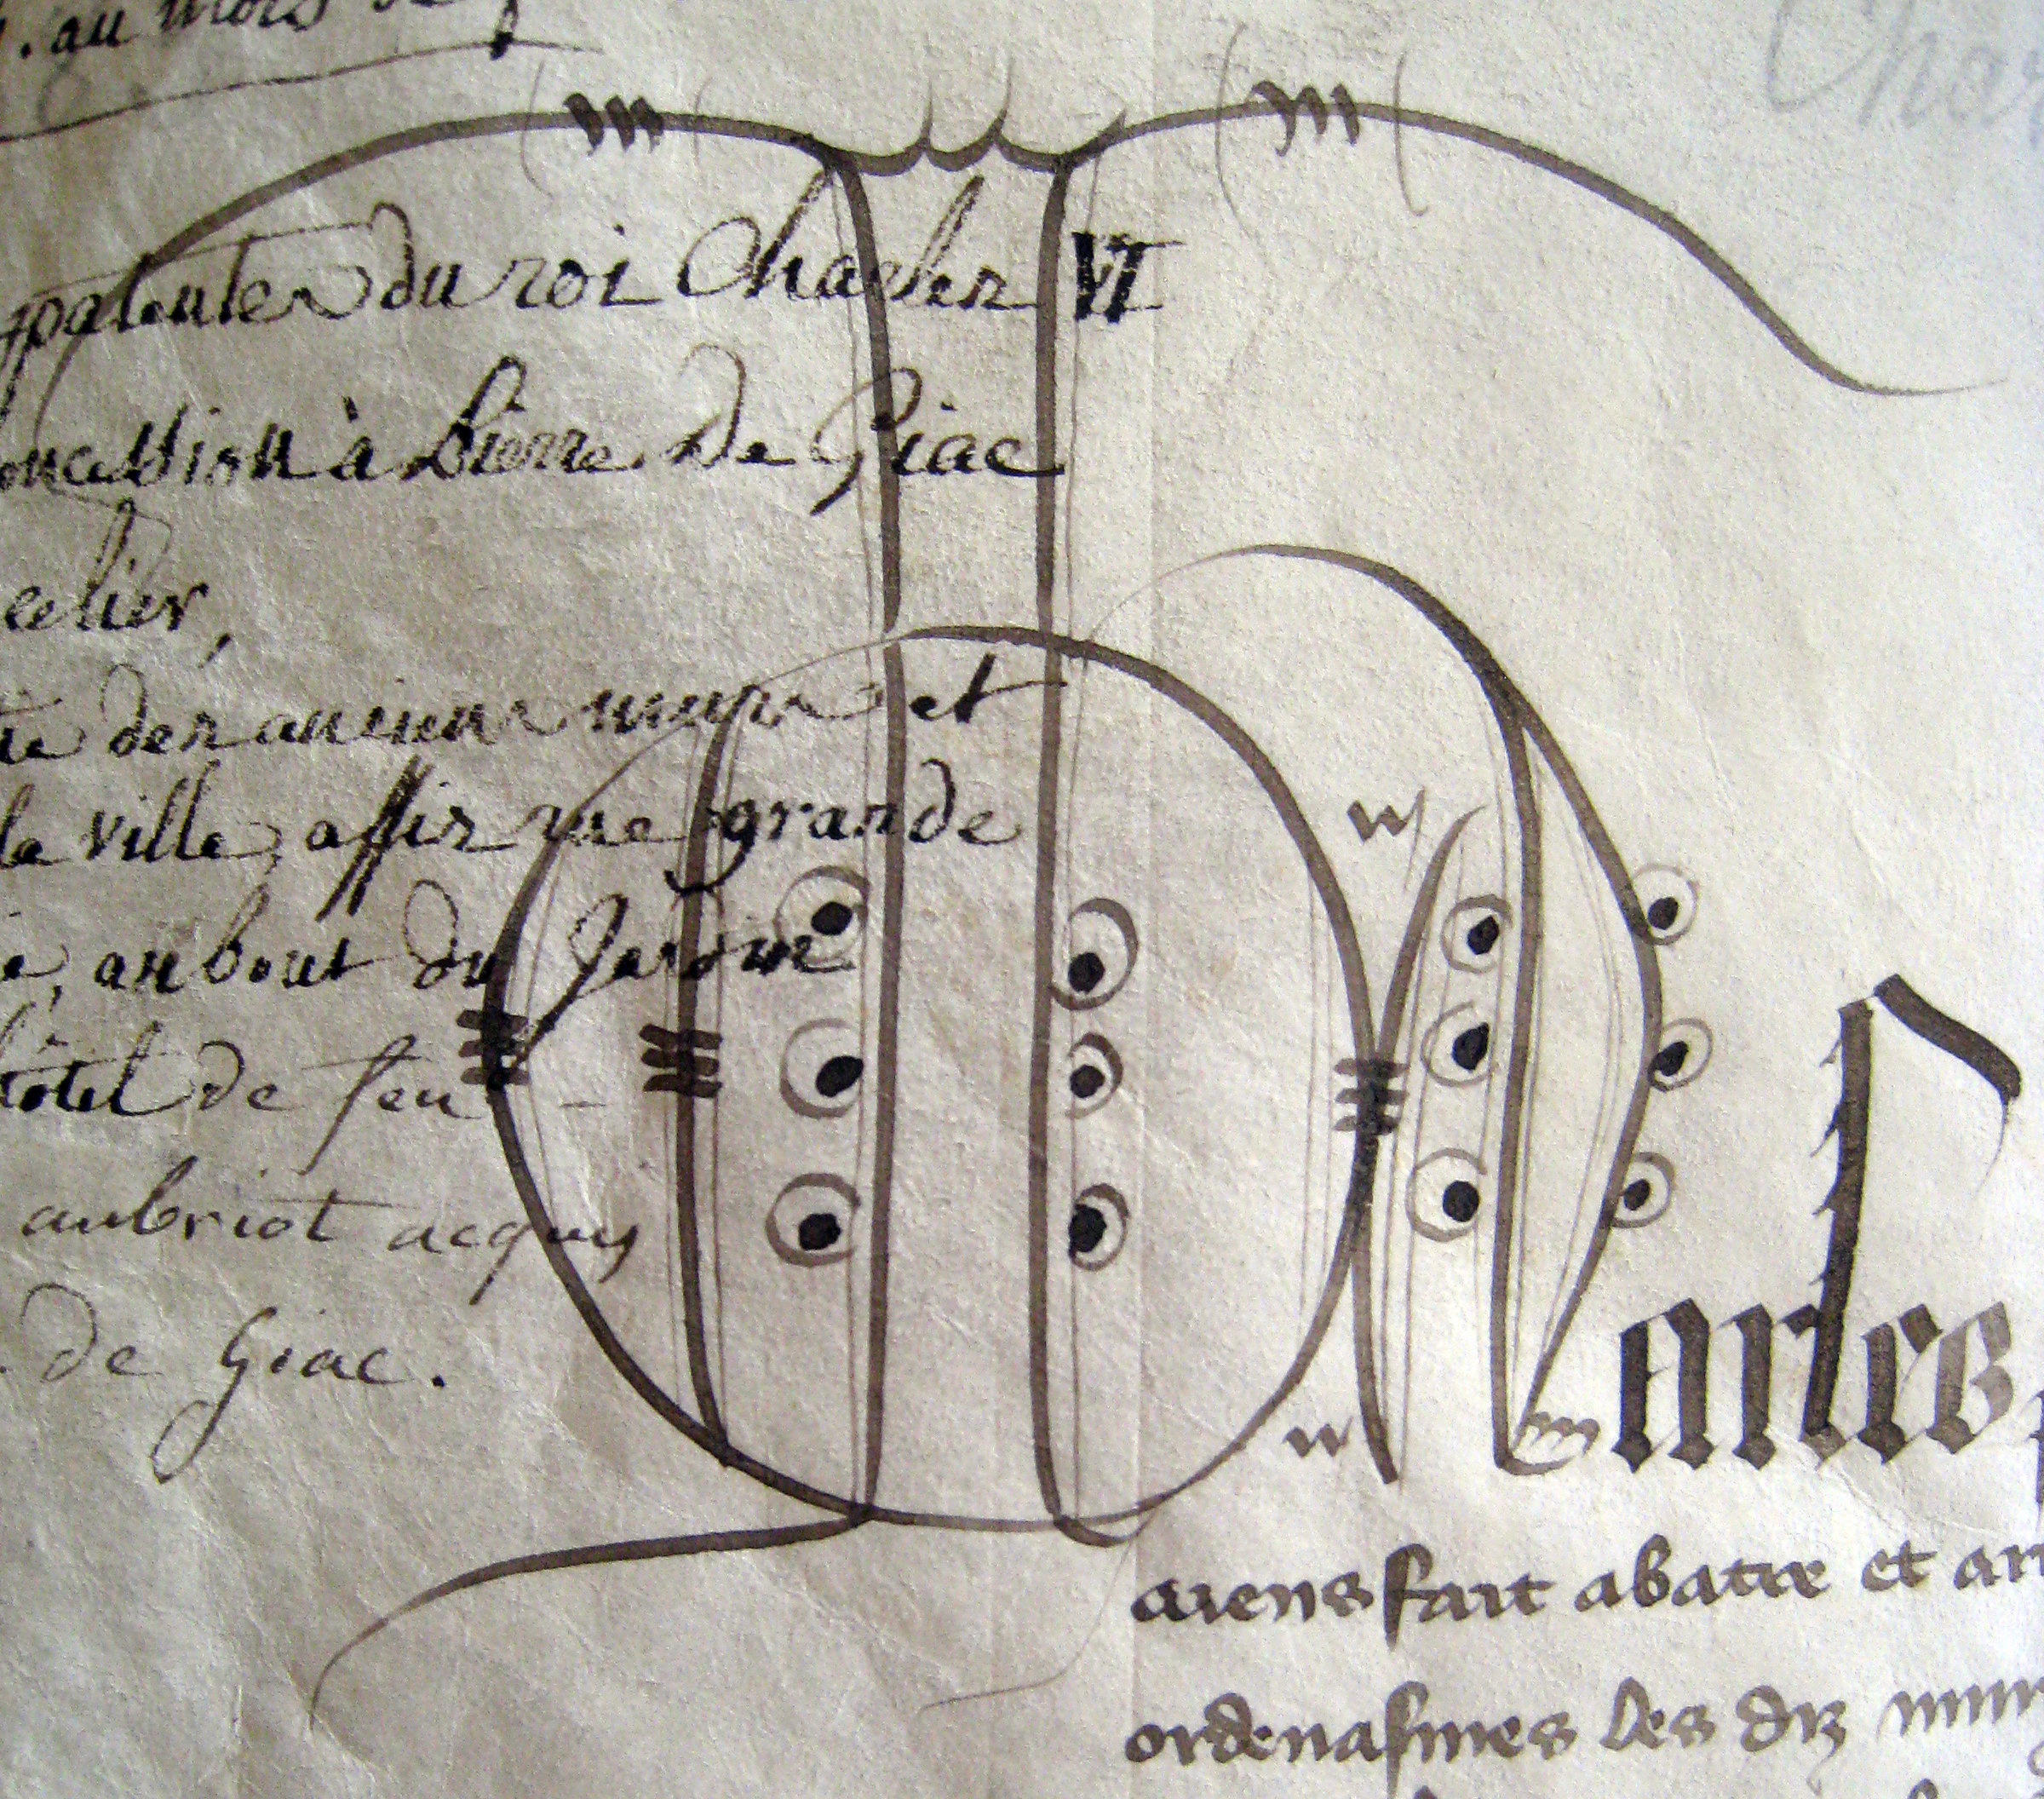 au mois de
patentes du roi Charles VI
concession à Pierre de Giac
celier,
des anciens murs et
la ville, assis rue grande
au bout du Jardin
hôtel de feu
aubriot acquis
de Giac.
Cha
Charles
aiens fait abatre et
ordenasmes les diz murs